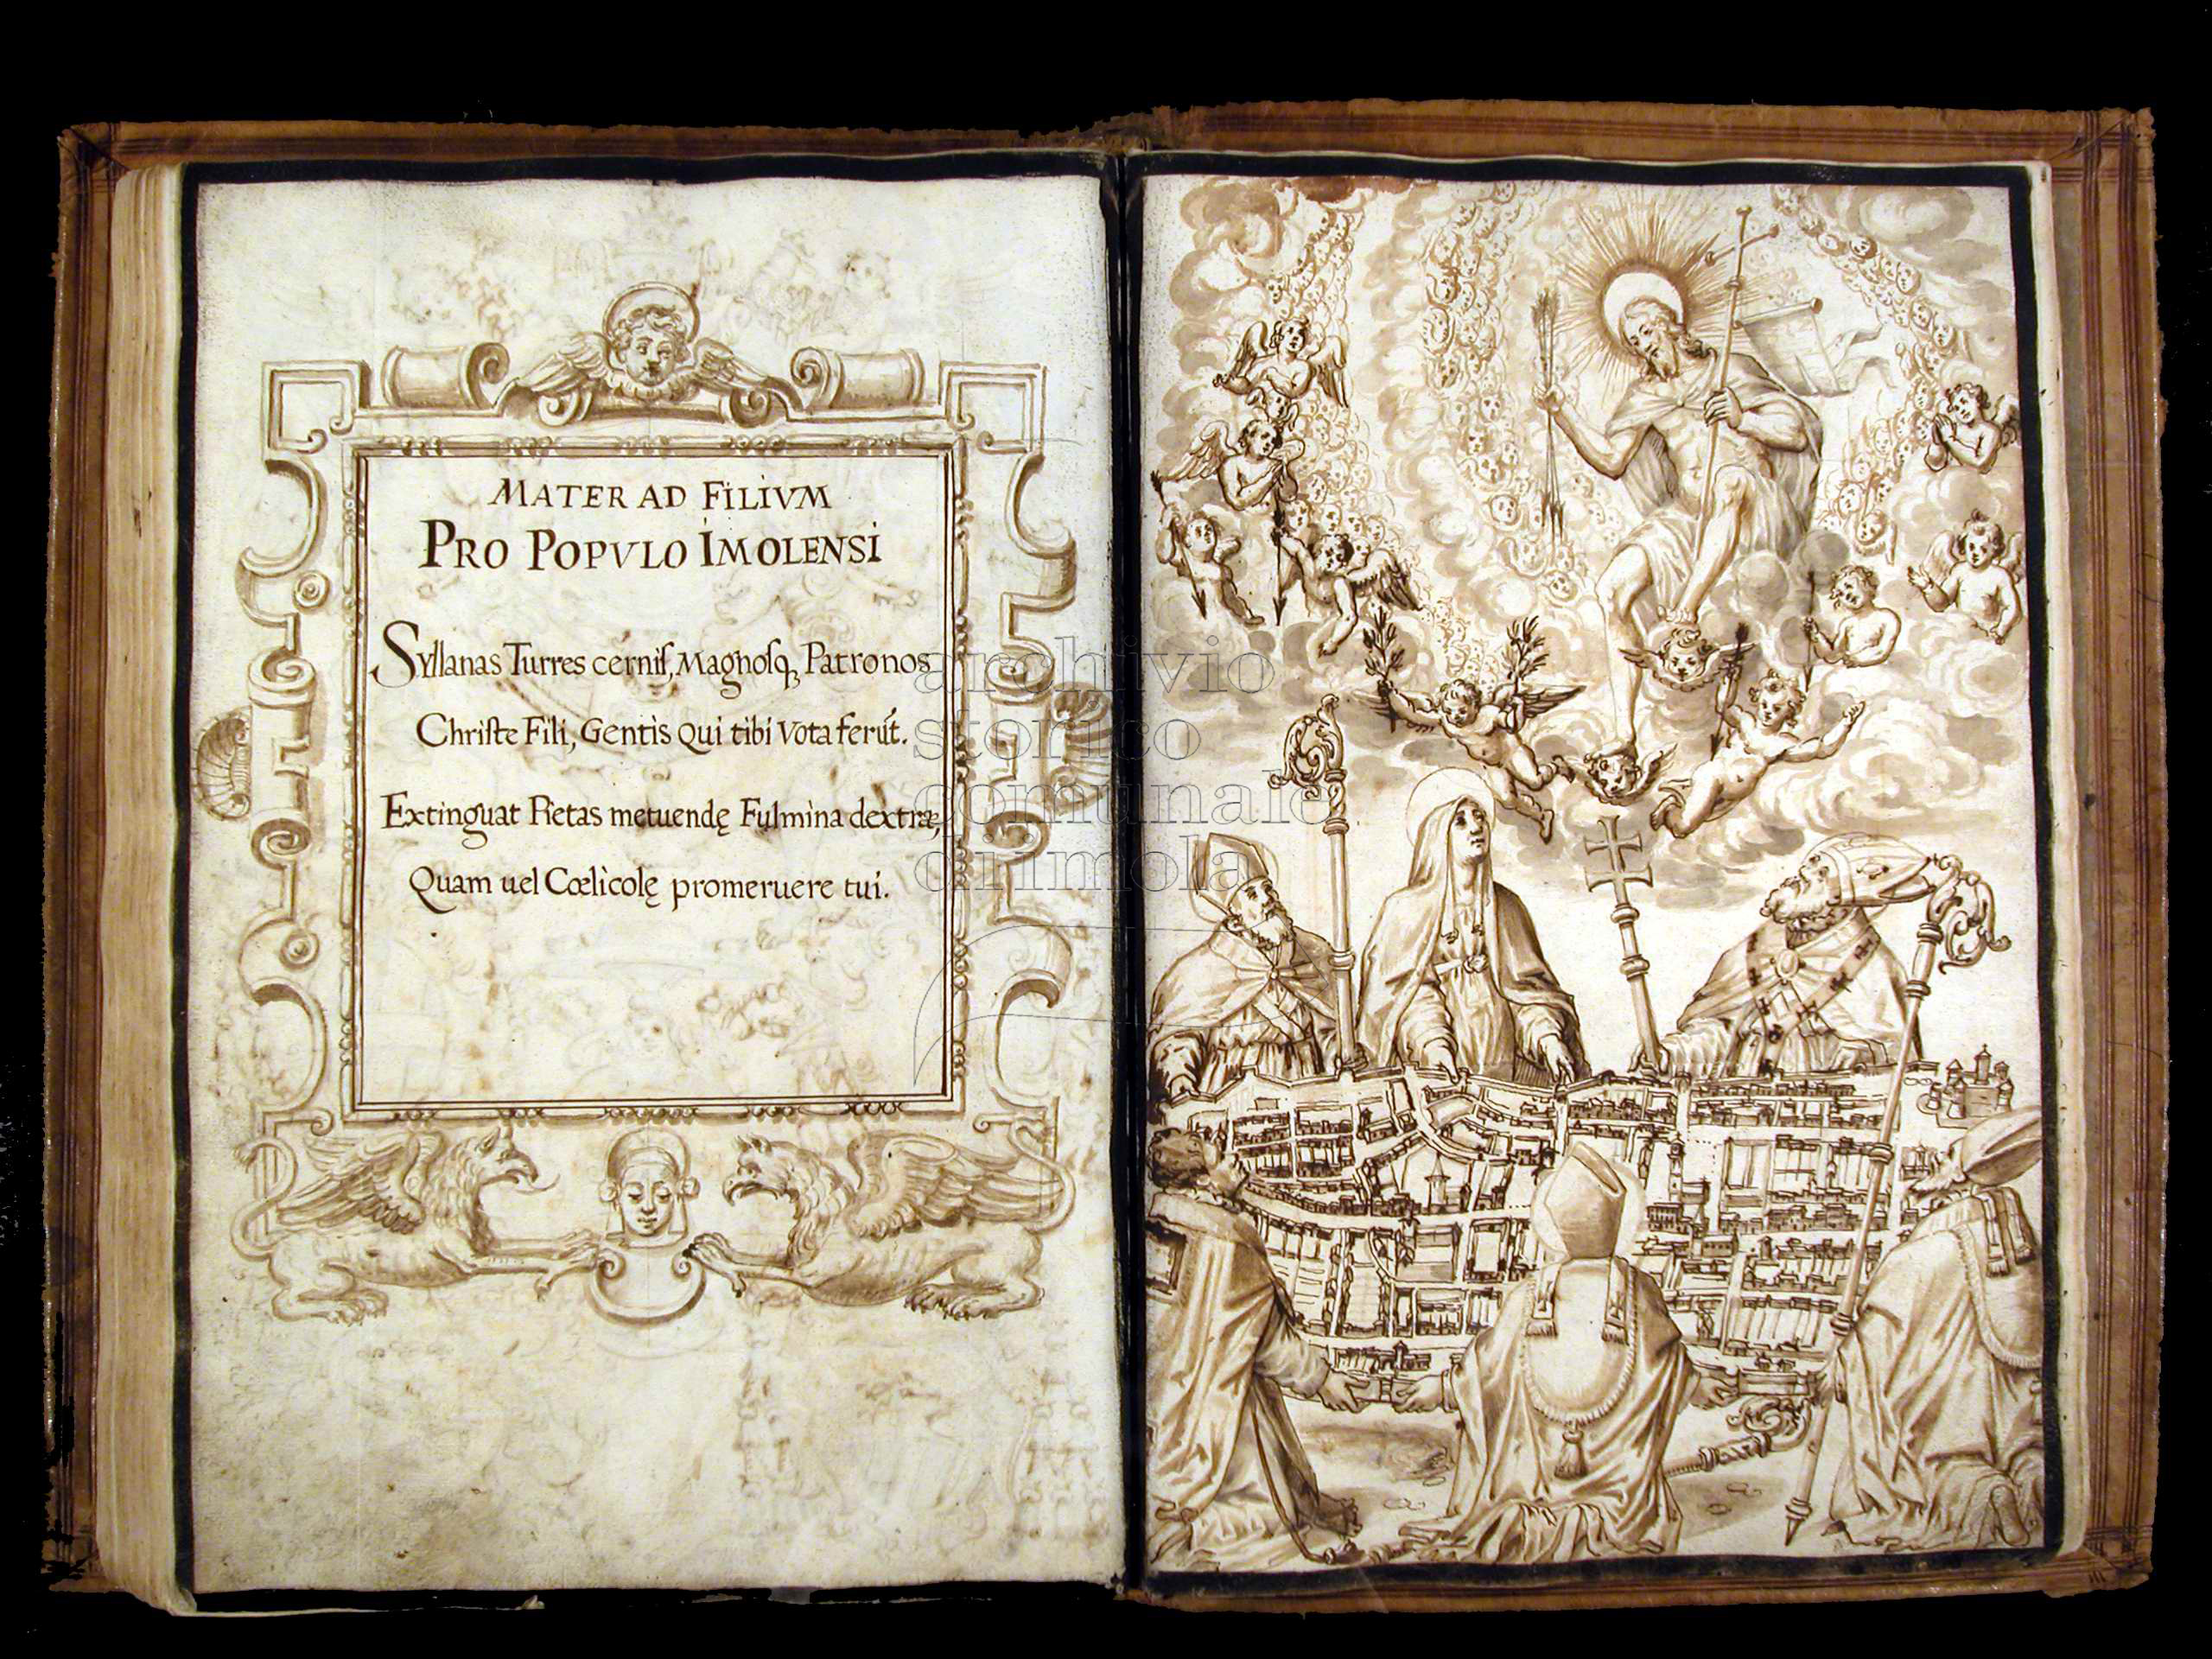 MATER AD FILIVM
PRO POPVLO IMOLENSI
Syllanas Turres cernis, Magnosq, Patronos
Christe Fili, Gentis qui tibi Vota ferút.
Extinguat Pietas metuendę Fulmina dextrae,
Quam uel Cœlicolę promeruere tui.
archivio
storico
comunale
di imola